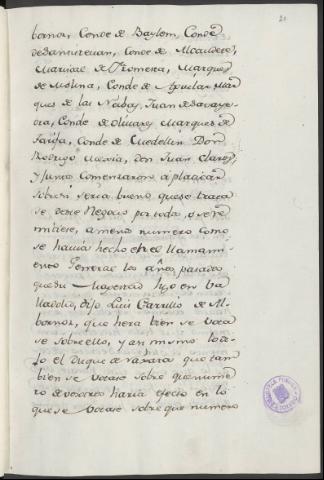 21
bornoz, Conde de Baylem, Conde
de Santistevan, Conde de Alcaudete,
Mariscal de Fromesta, Marques
de Molina, Conde de Aguilar Mar
ques de las Nabas, Juan de Saraye
dra, Conde de Olivares, Marques de
Tarifa, Conde de Medellin Don
Rodrigo Mexia, Don Juan Claros,
y Juntos Comenzaron a platicar
Sobre si seria bueno que se tratase
se deste Negocio por todos, o se re
mitiese, a menor numero como
se havia hecho en el llamami
ento General los años pasados
que su Magestad hizo en Va
lladolid, dijo Luis Carrillo de Al
bornoz, que hera bien se vota
se sobre ello, y asi mismo lo di
jo el Duque de que tam
bien se votase sobre que nume
ro de votos haria efecto en lo
que se votase sobre que numero